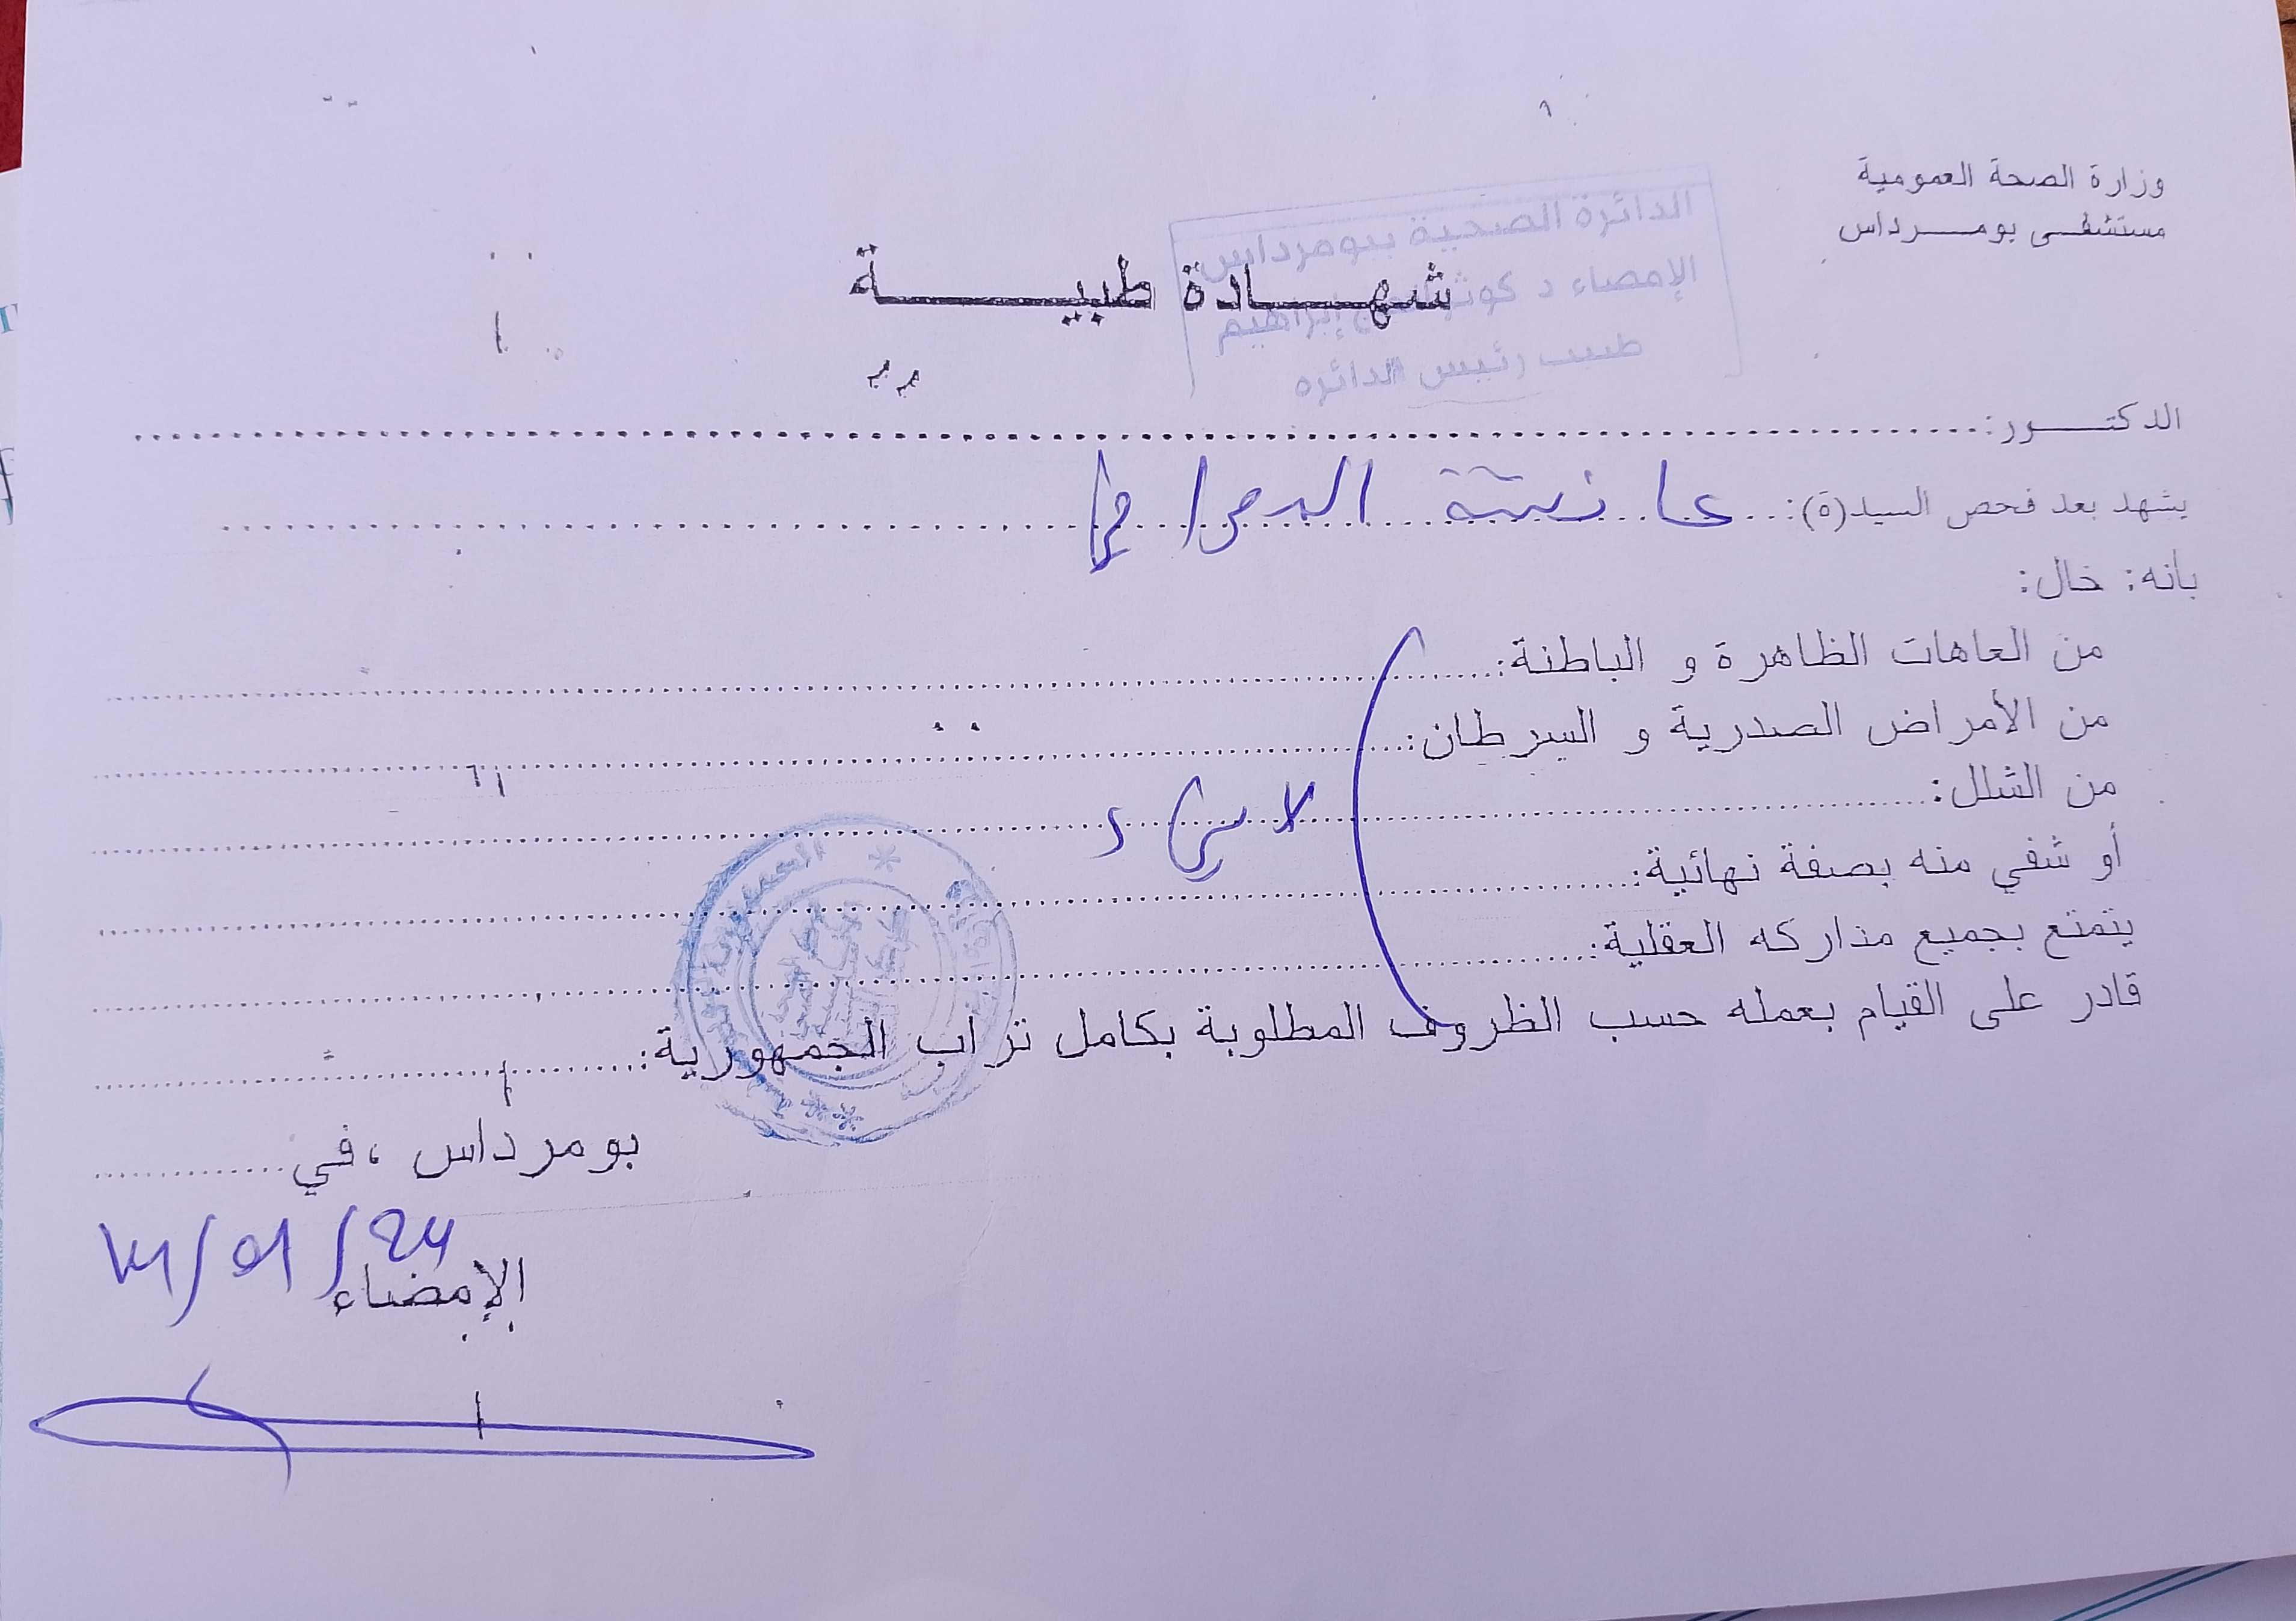 وزارة الصحة العمومية
مستشفى بومرداس
الدائرة الصحية ببومرداس
الإمضاء د كوثر إبراهيم
طبيب رئيس الدائرة
شهادة طبية
الدكتور:
يشهد بعد فحص السيد(ة):
بانه: خال:
من العاهات الظاهرة و الباطنة:
من الأمراض الصدرية و السرطان:
من الشلل:
لا شيء
أو شفي منه بصفة نهائية:
يتمتع بجميع مداركه العقلية:
قادر على القيام بعمله حسب الظروف المطلوبة بكامل تراب الجمهورية:
بومرداس ،في
الإمضاء